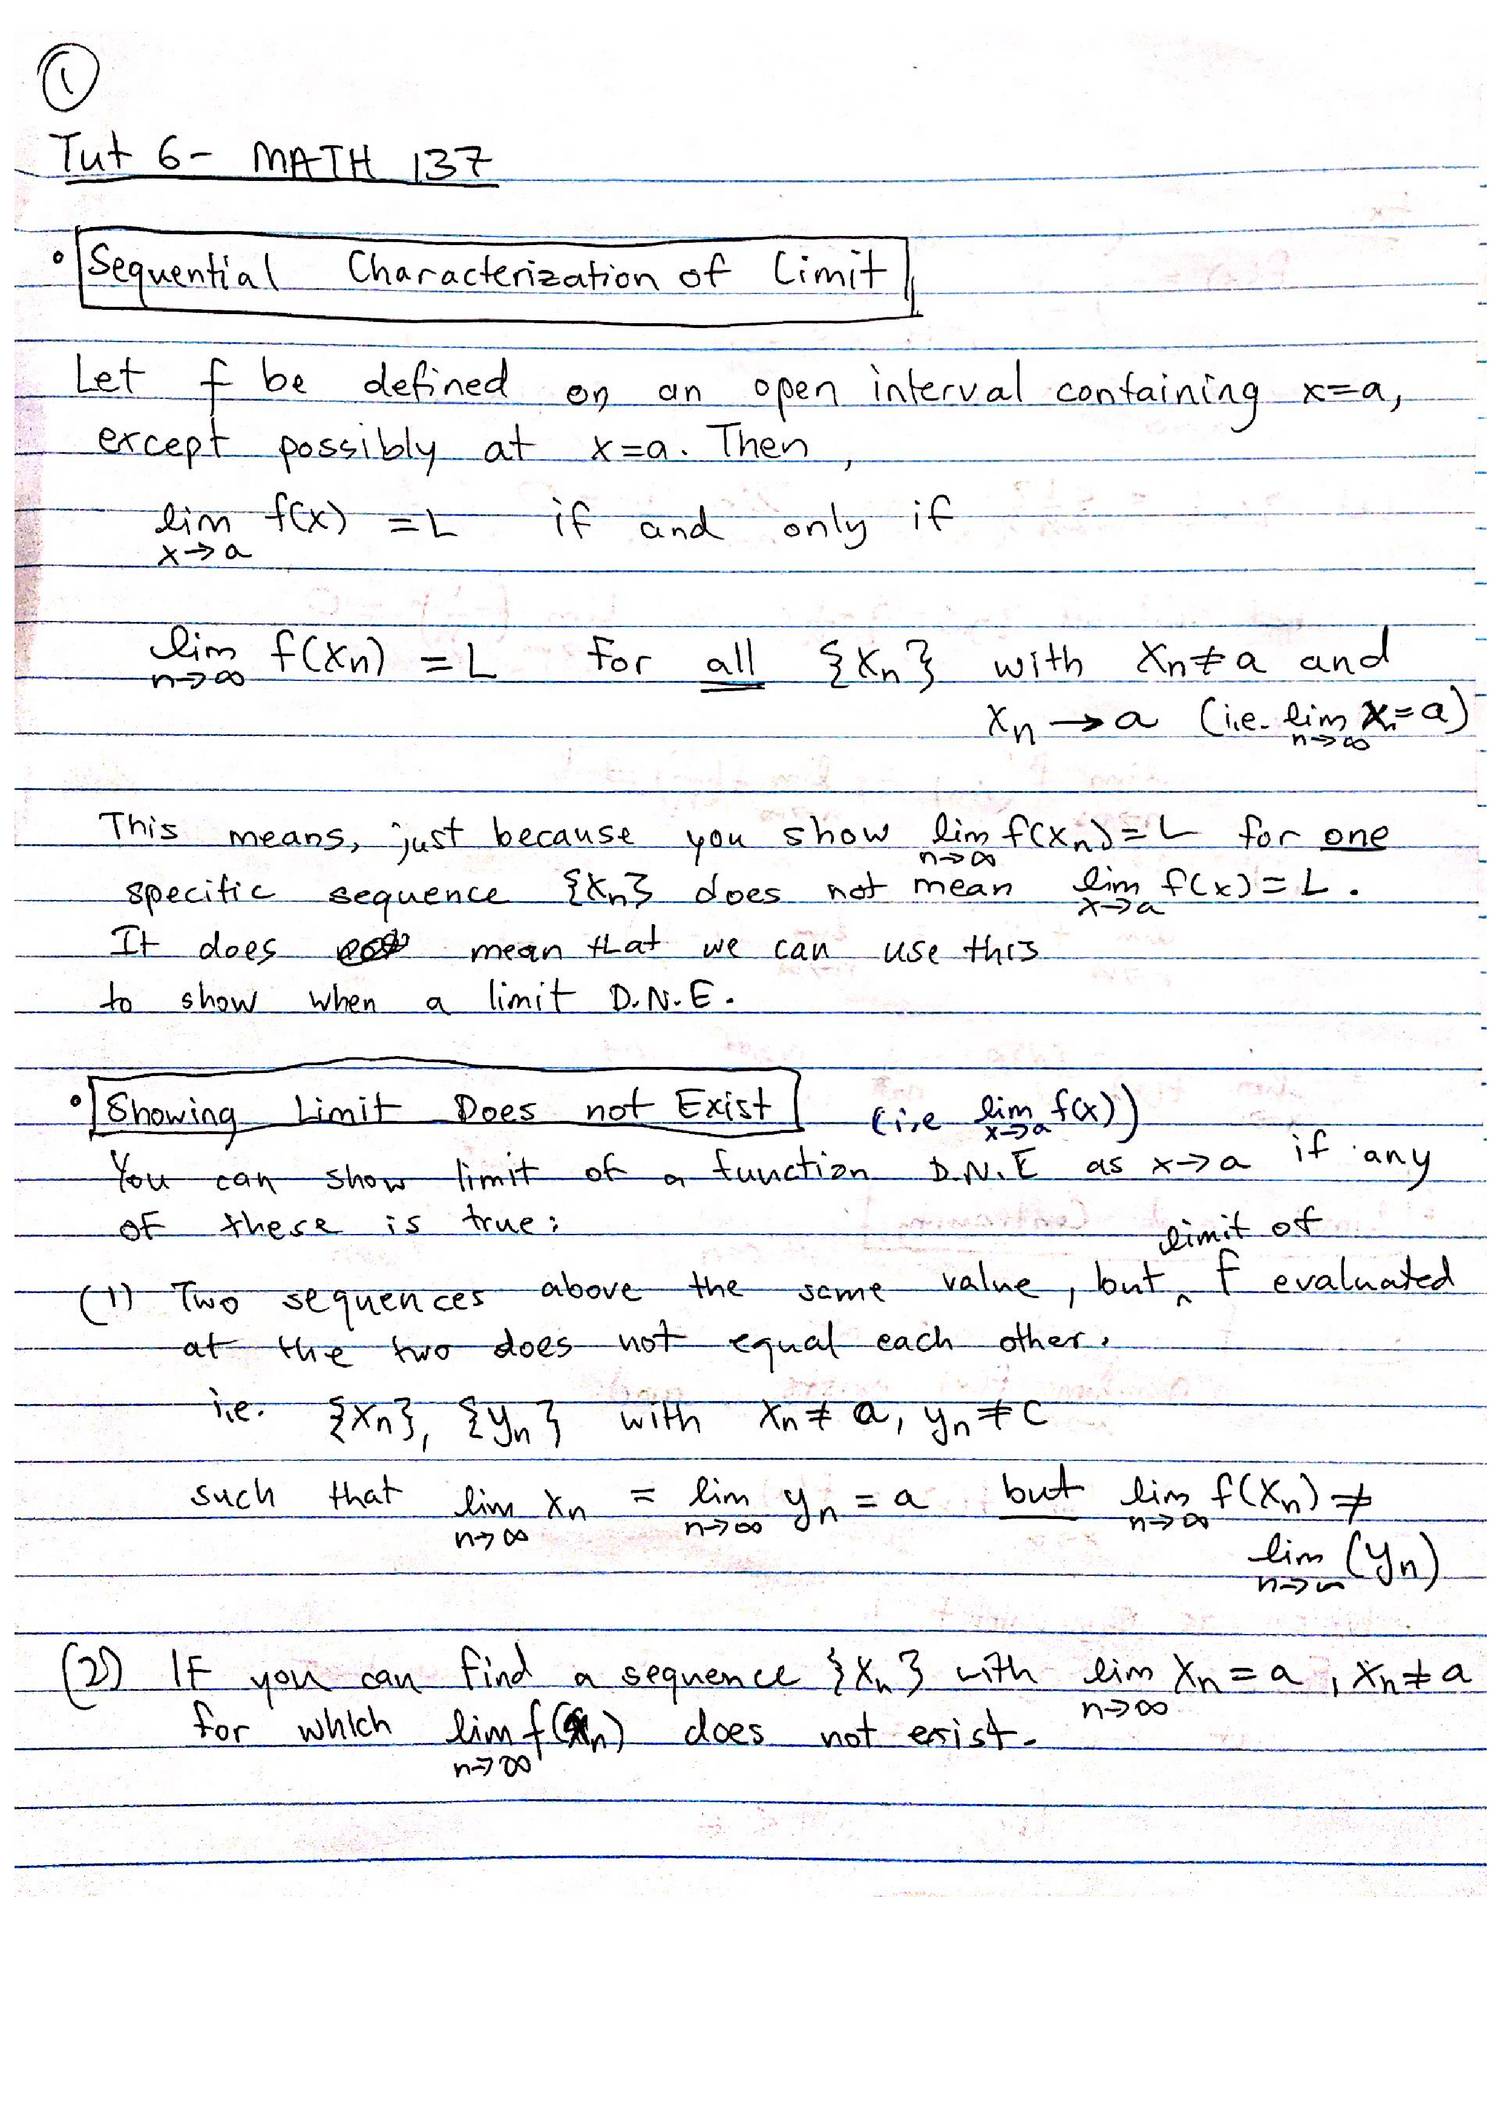 ①
Tut 6- MATH 137
• Sequential Characterization of Limit
Let f be defined on an open interval containing x=a,
except possibly at x=a. Then,
lim f(x) = L if and only if
x→a
lim f(xn) = L for all {xn} with xn≠a and
n→∞
xn → a (i.e. lim x = a)
n→∞
This means, just because you show lim f(xn)=L for one
n→∞
specific sequence {xn} does not mean lim f(x)=L.
x→a
It does mean that we can use this
to show when a limit D.N.E.
• Showing Limit Does not Exist (i.e lim f(x))
x→a
You can show limit of a function D.N.E as x→a if any
of these is true:
limit of
(1) Two sequences above the same value, but ^ f evaluated
at the two does not equal each other.
i.e. {xn}, {yn} with xn ≠ a, yn ≠ c
such that lim xn = lim yn = a but lim f(xn) ≠
n→∞ n→∞ n→∞
lim (yn)
n→∞
(2) If you can find a sequence {xn} with lim xn = a, xn≠a
n→∞
for which lim f(xn) does not exist.
n→∞